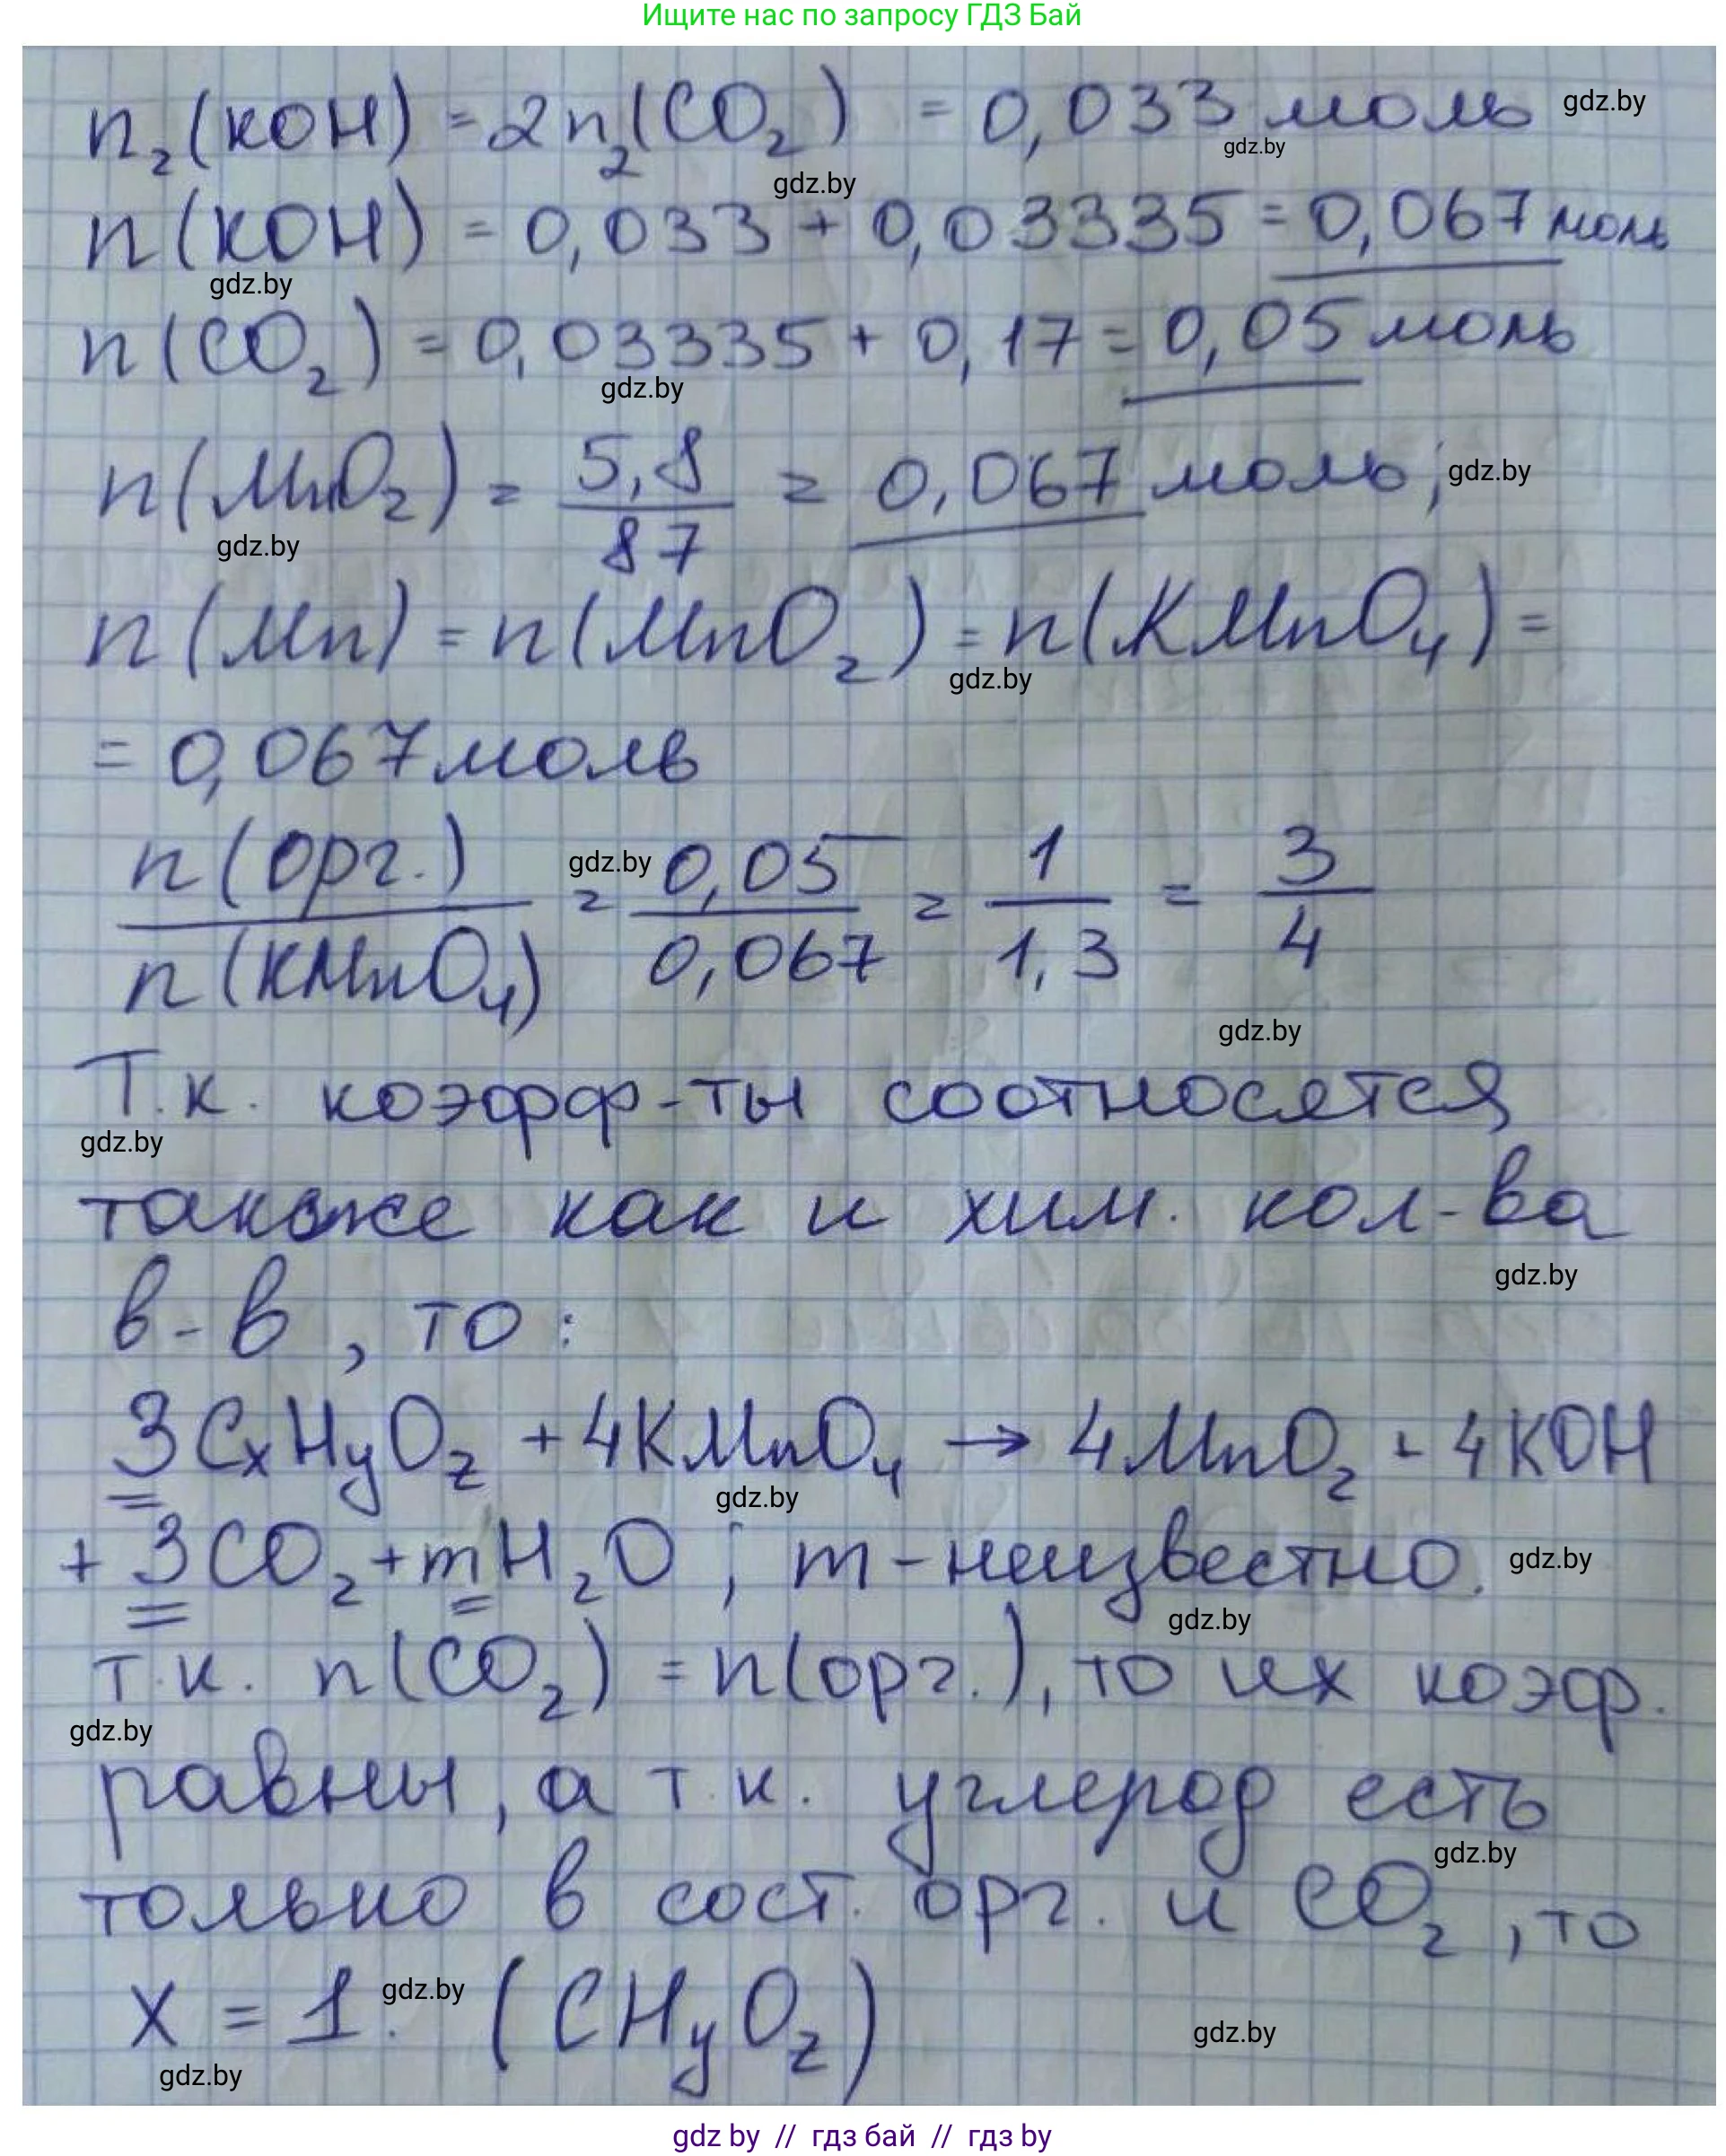 Ищите нас по запросу ГДЗ Бай
n₂(KOH) = 2n₂(CO₂) = 0,033 моль gdz.by
gdz.by
gdz.by
n(KOH) = 0,033 + 0,03335 = 0,067 моль
gdz.by
n(CO₂) = 0,03335 + 0,17 = 0,05 моль
gdz.by
n(MnO₂) = 5,8/87 = 0,067 моль; gdz.by
gdz.by
n(Mn) = n(MnO₂) = n(KMnO₄) =
gdz.by
= 0,067 моль
n(орг.)/n(KMnO₄) = 0,05/0,067 = 1/1,3 = 3/4
gdz.by
gdz.by
Т.к. коэфф-ты соотносятся
gdz.by
также как и хим. кол-ва
gdz.by
в-в, то:
3CxHyOz + 4KMnO₄ → 4MnO₂ + 4KOH
gdz.by
+ 3CO₂ + mH₂O; m - неизвестно. gdz.by
gdz.by
т.к. n(CO₂) = n(орг.), то их коэф.
gdz.by
равны, а т.к. углерод есть
gdz.by
только в сост. орг. и CO₂, то
x = 1. gdz.by (CHyOz)
gdz.by
gdz.by
gdz by // гдз бай // гдз by